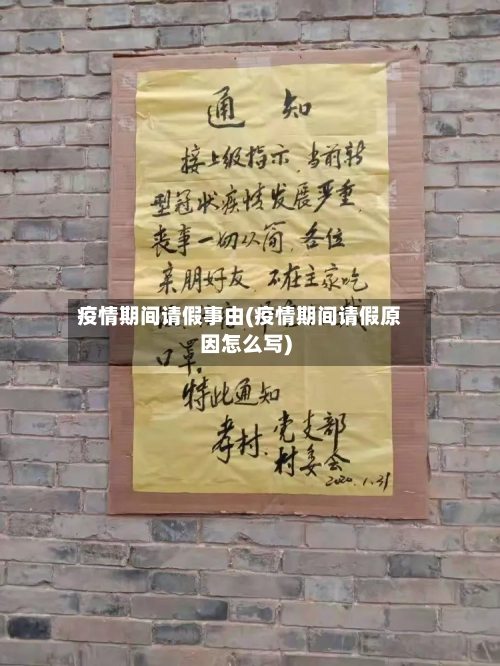 通知
接上级指示,当前新
型冠状疾情发展严重,
丧事一切从简,各位
亲朋好友,不在主家吃
疫情期间请假事由(疫情期间请假原
因怎么写)
口罩。
特此通知
孝村.党支部
村委会
2020.1.31